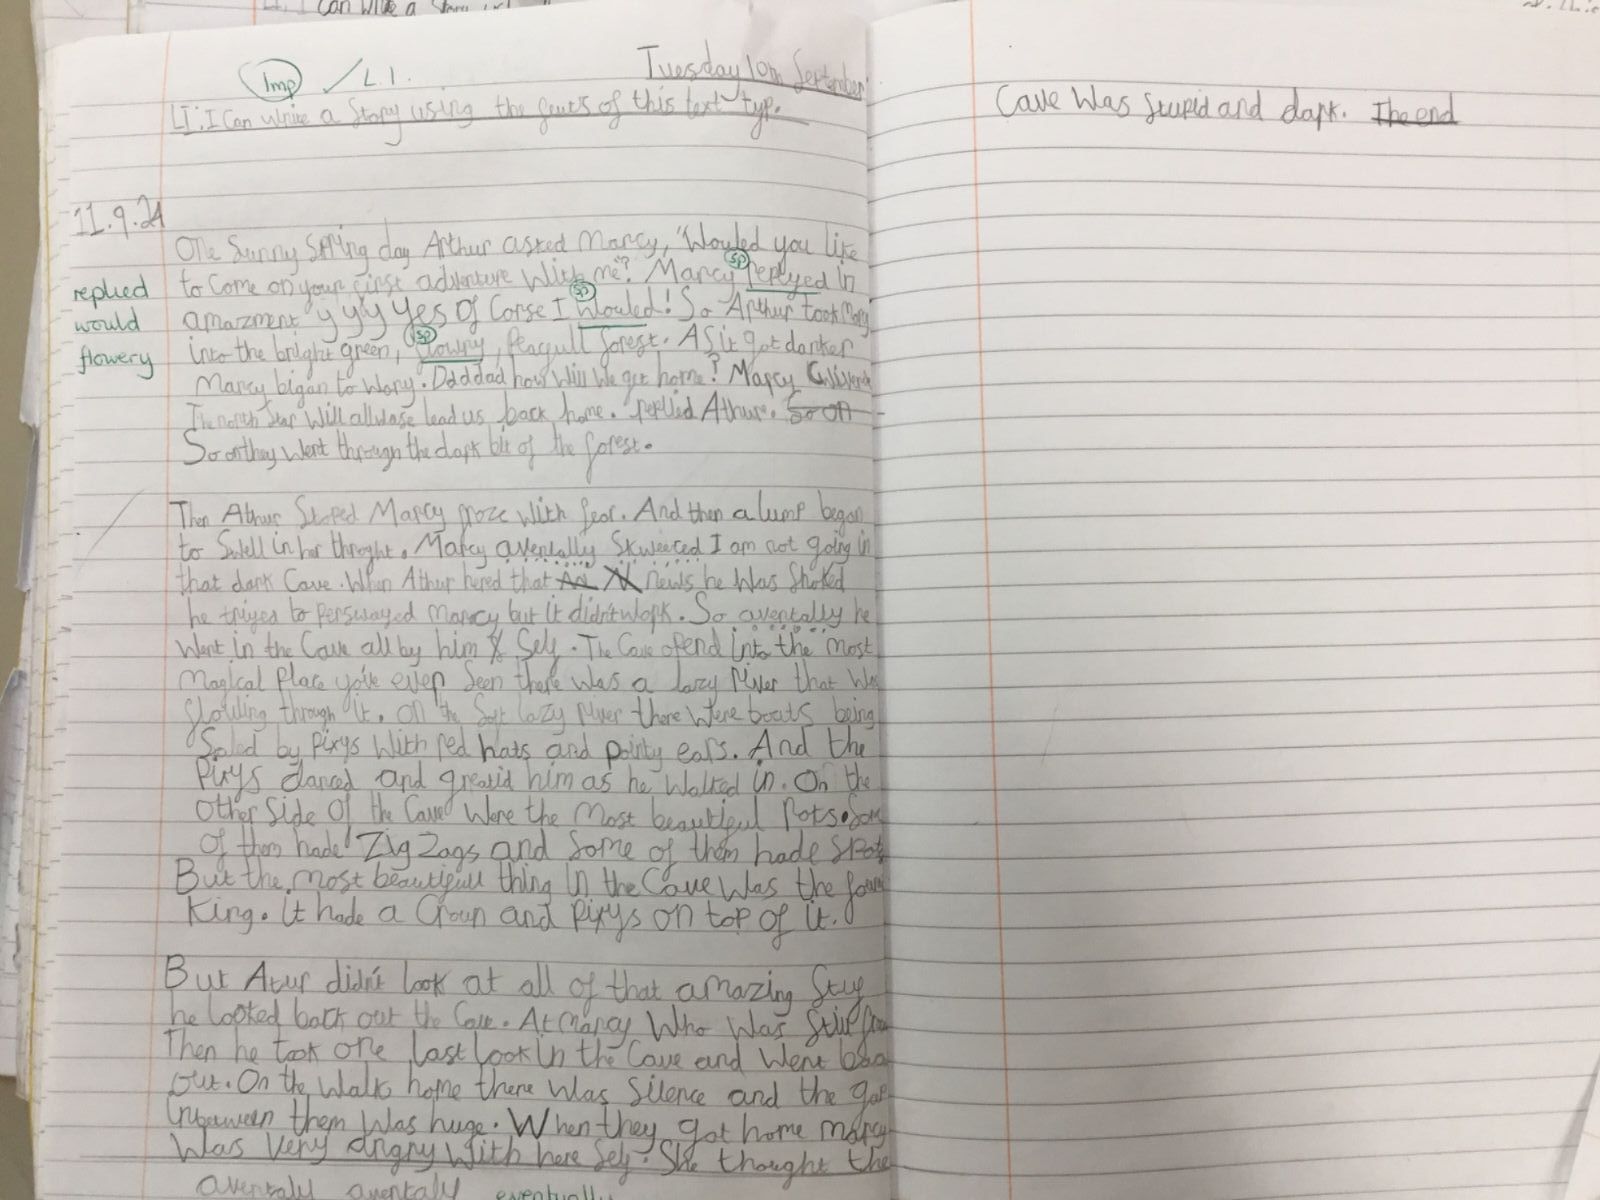 I can write a Story
Tuesday 10th September
Imp ✓ L.I.
LI: I Can write a Story using the feuts of this text typ.
11.9.24
One Sunny Spring day Arthur asked Marcy, "Wouled you like
to Come on your first adventure With me"? Marcy replyed in
sp
replied
amazment "y y y yes of Corse I Wouled! So Arthur took Marcy
sp
would
into the bright green, flowry, peacgull forest. As it got darker
sp
flowery
Marcy began to Wory. Ddddad how Will We get home? Marcy
The north Star Will allwase lead us back home. replied Athur. So on
So on they Went through the dark bit of the forest.
Then Athur Stoped Marcy froze With fear. And then a lump began
to Swell in her throght. Marcy aventally Skweeced I am not going in
that dark Cave. When Athur hered that news he Was Shoked
he triyes to perswayed Marcy but it didn't work. So aventally he
Went in the Cave all by him Self. The Cave opend into the most
magical Place you've ever Seen there Was a lazy River that Was
flowing through it. On the Soft lazy River there Were boats being
Saled by Pixys With red hats and pointy ears. And the
Pixys danced and greatid him as he Walked in. On the
other Side of the Cave Were the most beautiful Pots. Som
of them hade ZigZags and Some of them hade Spots
But the most beautifull thing in the Cave Was the
King. it hade a Croun and Pixys on top of it.
But Atur didn't look at all of that amazing Stuf
he looked back out the Cave. At Marcy Who Was Still
Then he took one last look in the Cave and Went back
out. On the Walk home there Was Silence and the gap
inbetween them Was huge. When they got home marcy
Was Very angry With here Self. She thought the
aventaly aventaly eventually
Cave Was Stupid and dark. The end